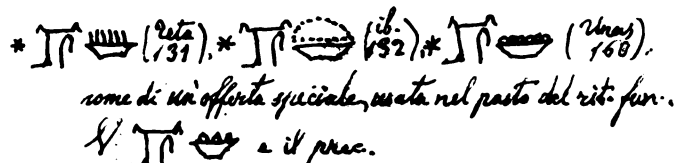 * (Teta 131), * (ib. 132), * (Unas 168).
nome di un'offerta speciale, usata nel pasto del rit. fun.
V. e il prec.